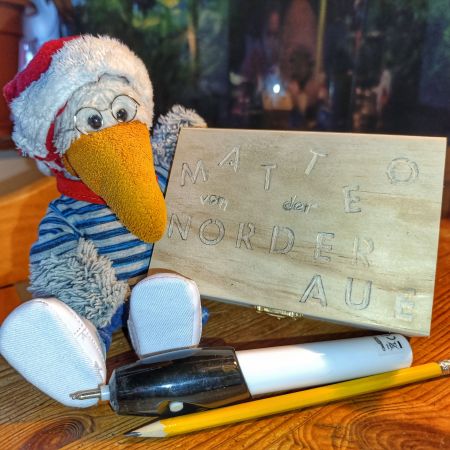 MATTEO
von der
NORDER
AUE